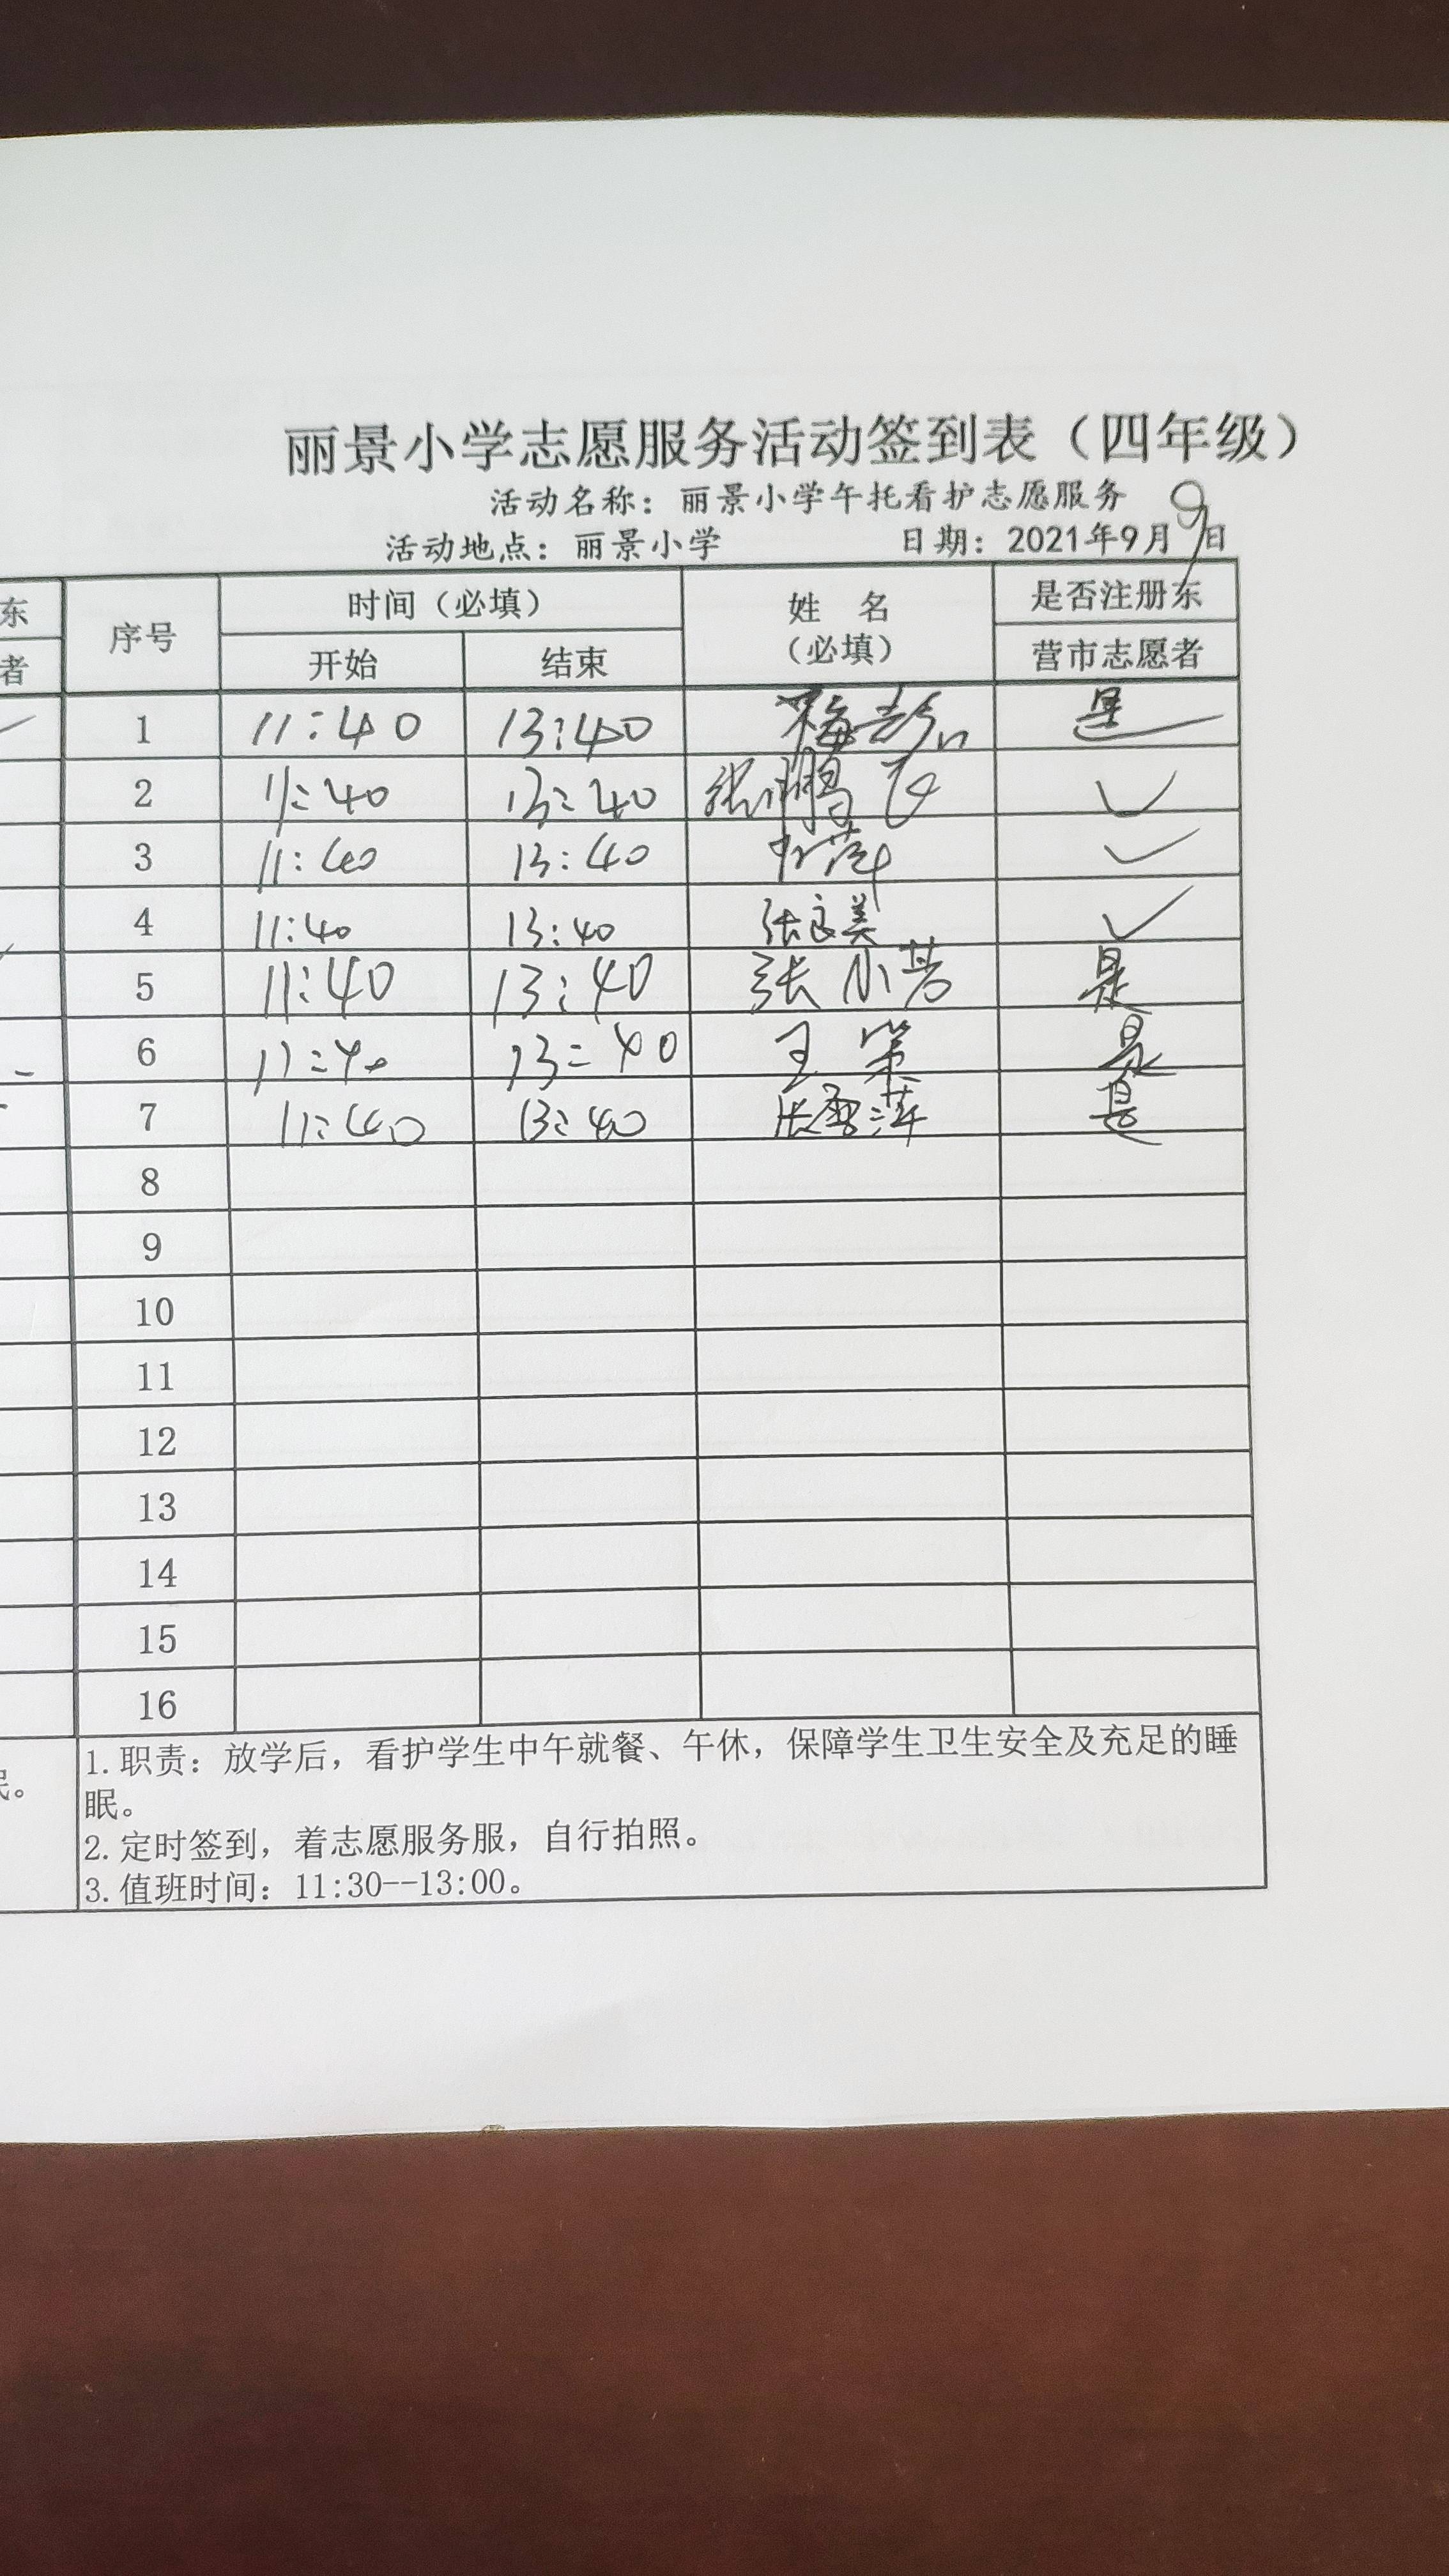 丽景小学志愿服务活动签到表（四年级）
活动名称：丽景小学午托看护志愿服务
活动地点：丽景小学 日期：2021年9月9日
东 序号 时间（必填） 姓 名 是否注册东
者 开始 结束 （必填） 营市志愿者
1 11:40 13:40 是
2 11:40 13:40 张鹏飞 ✓
3 11:40 13:40 ✓
4 11:40 13:40 张良美 ✓
5 11:40 13:40 张小芳 是
6 11:40 13:40 王策 是
7 11:40 13:40 是
8
9
10
11
12
13
14
15
16
1.职责：放学后，看护学生中午就餐、午休，保障学生卫生安全及充足的睡
眠。
2.定时签到，着志愿服务服，自行拍照。
3.值班时间：11:30--13:00。